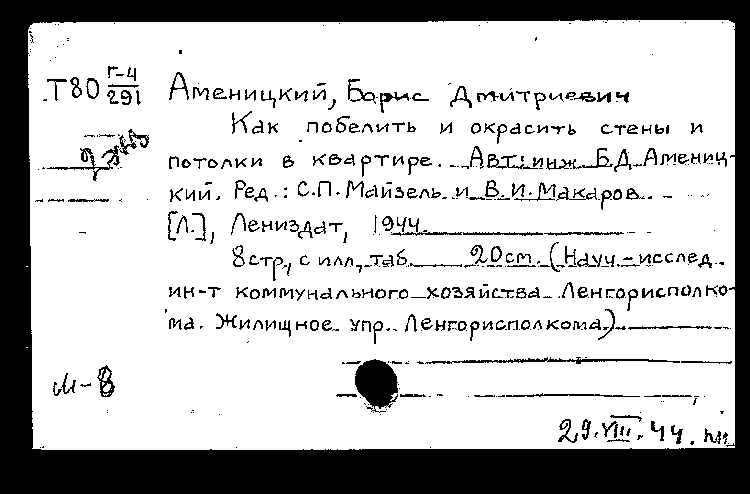 Т80 Г-4/291
Аменицкий, Борис Дмитриевич
Как побелить и окрасить стены и
потолки в квартире. Авт: инж Б.Д. Амениц-
кий. Ред.: С.П. Майзель и В.И. Макаров.
[Л.], Лениздат, 1944.
8 стр., с илл., таб. 20 см. (Науч.-исслед.
ин-т коммунального хозяйства Ленгорисполко-
ма. Жилищное упр. Ленгорисполкома)
М-8
29.VIII.44.